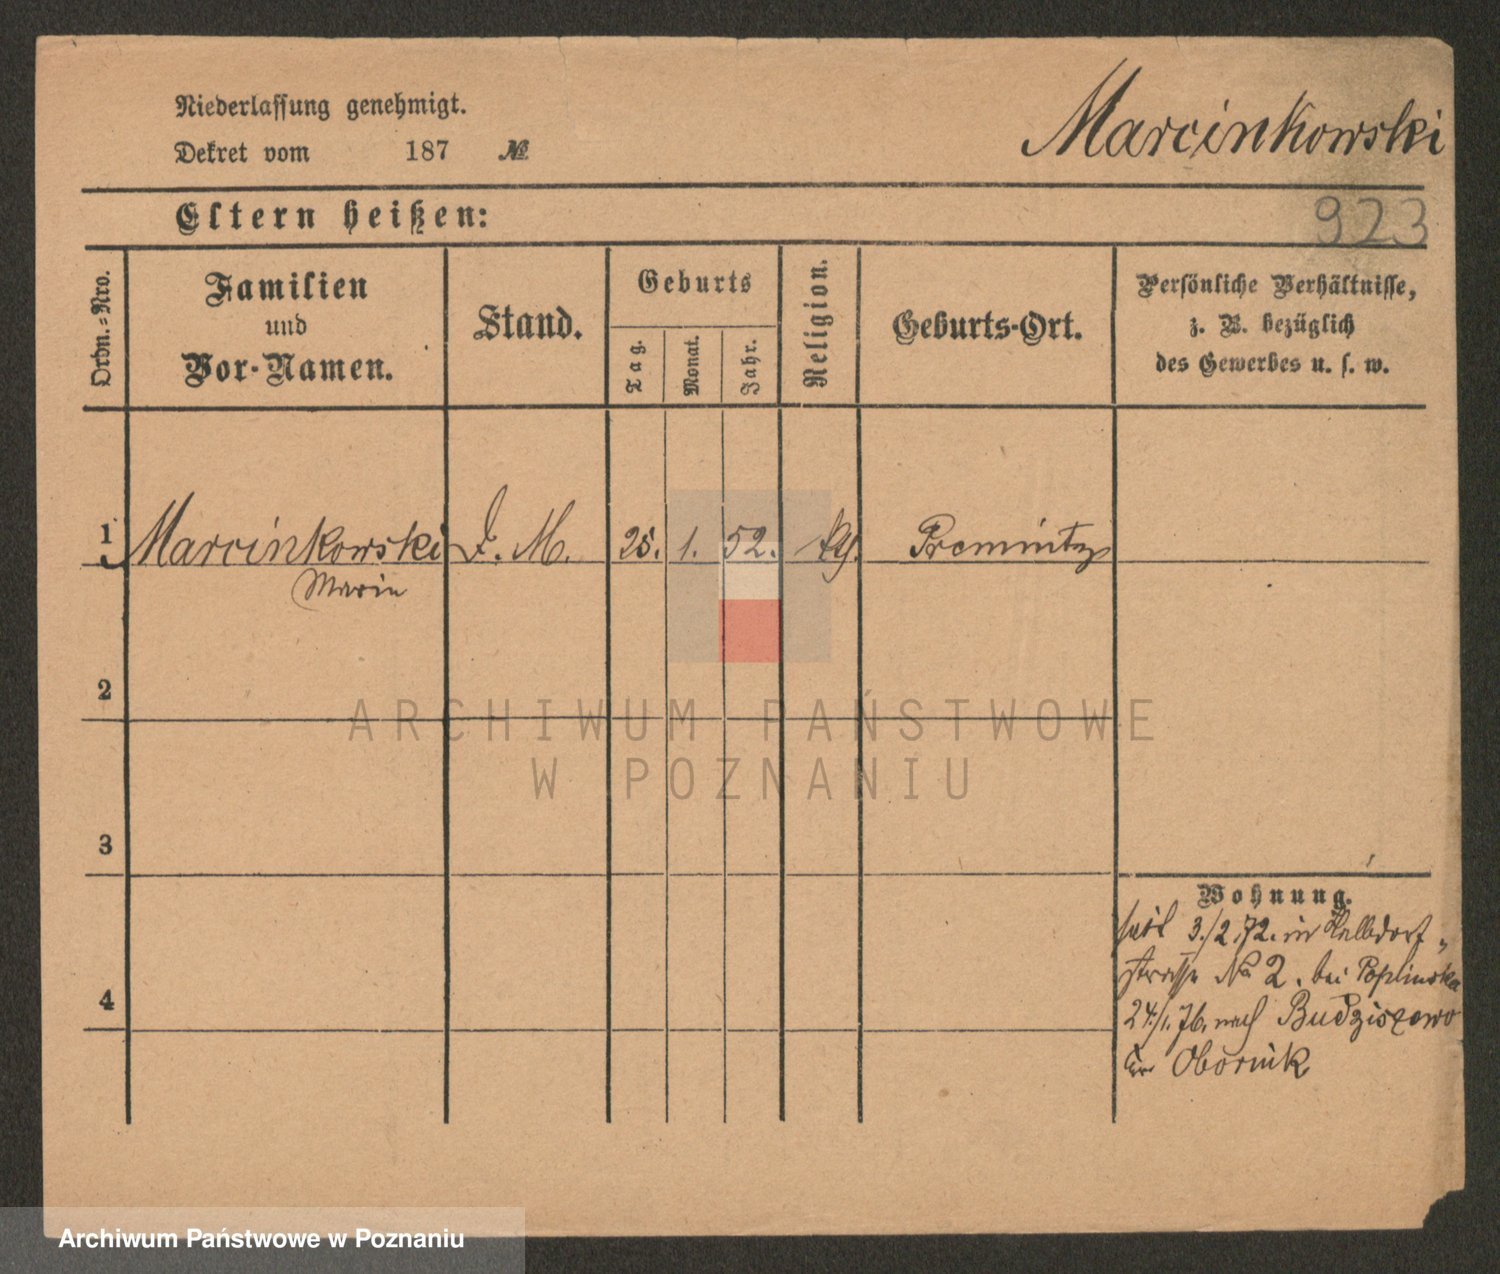 Niederlassung genehmigt.
Dekret vom 187 №
Marcinkowski
Eltern heißen:
923
Ordn.-Nro.
Familien
und
Vor-Namen.
Stand.
Geburts
Tag.
Monat.
Jahr.
Religion.
Geburts-Ort.
Persönliche Verhältnisse,
z. B. bezüglich
des Gewerbes u. s. w.
1 Marcinkowski D. M. 25. 1. 52. Premnitz
Marie
2
ARCHIWUM PAŃSTWOWE
W POZNANIU
3
4
Wohnung.
seit 3./2.72. in Halbdorf
strasse No 2. bei Poplinska
24./1.76. nach Budziszewo
Kr Obornik
Archiwum Państwowe w Poznaniu